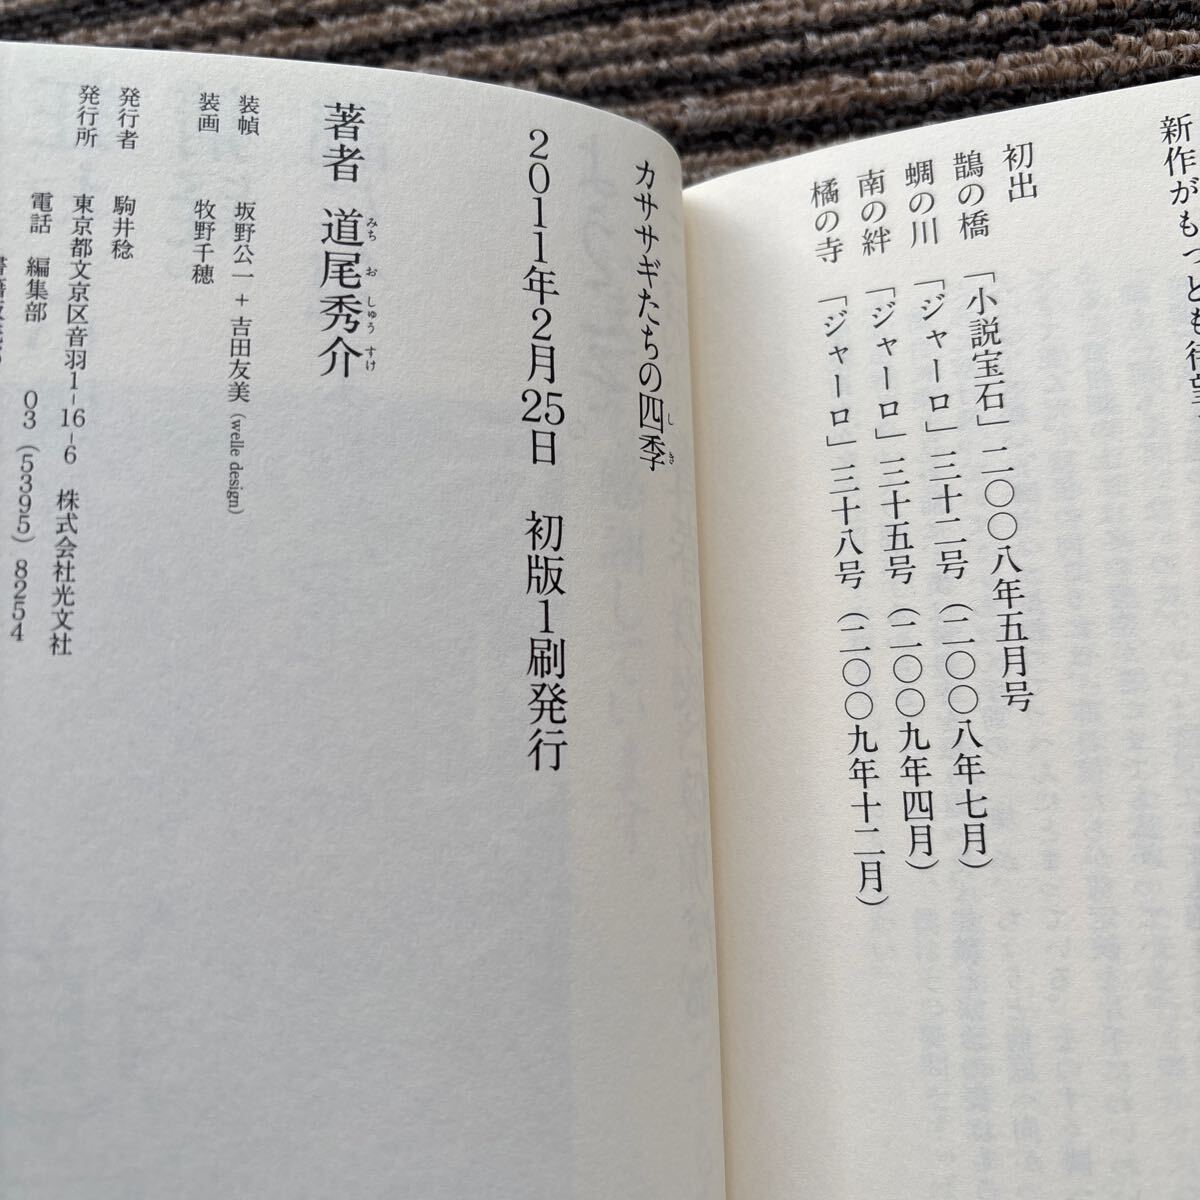 新作がもっとも待望
初出
鵲の橋 「小説宝石」二〇〇八年五月号
蜩の川 「ジャーロ」三十二号（二〇〇八年七月）
南の絆 「ジャーロ」三十五号（二〇〇九年四月）
橘の寺 「ジャーロ」三十八号（二〇〇九年十二月）
カササギたちの四季
しき
2011年2月25日 初版1刷発行
著者 道尾秀介
みちおしゅうすけ
装幀 坂野公一＋吉田友美（welle design）
装画 牧野千穂
発行者 駒井稔
発行所 東京都文京区音羽1-16-6 株式会社光文社
電話 編集部 03（5395）8254